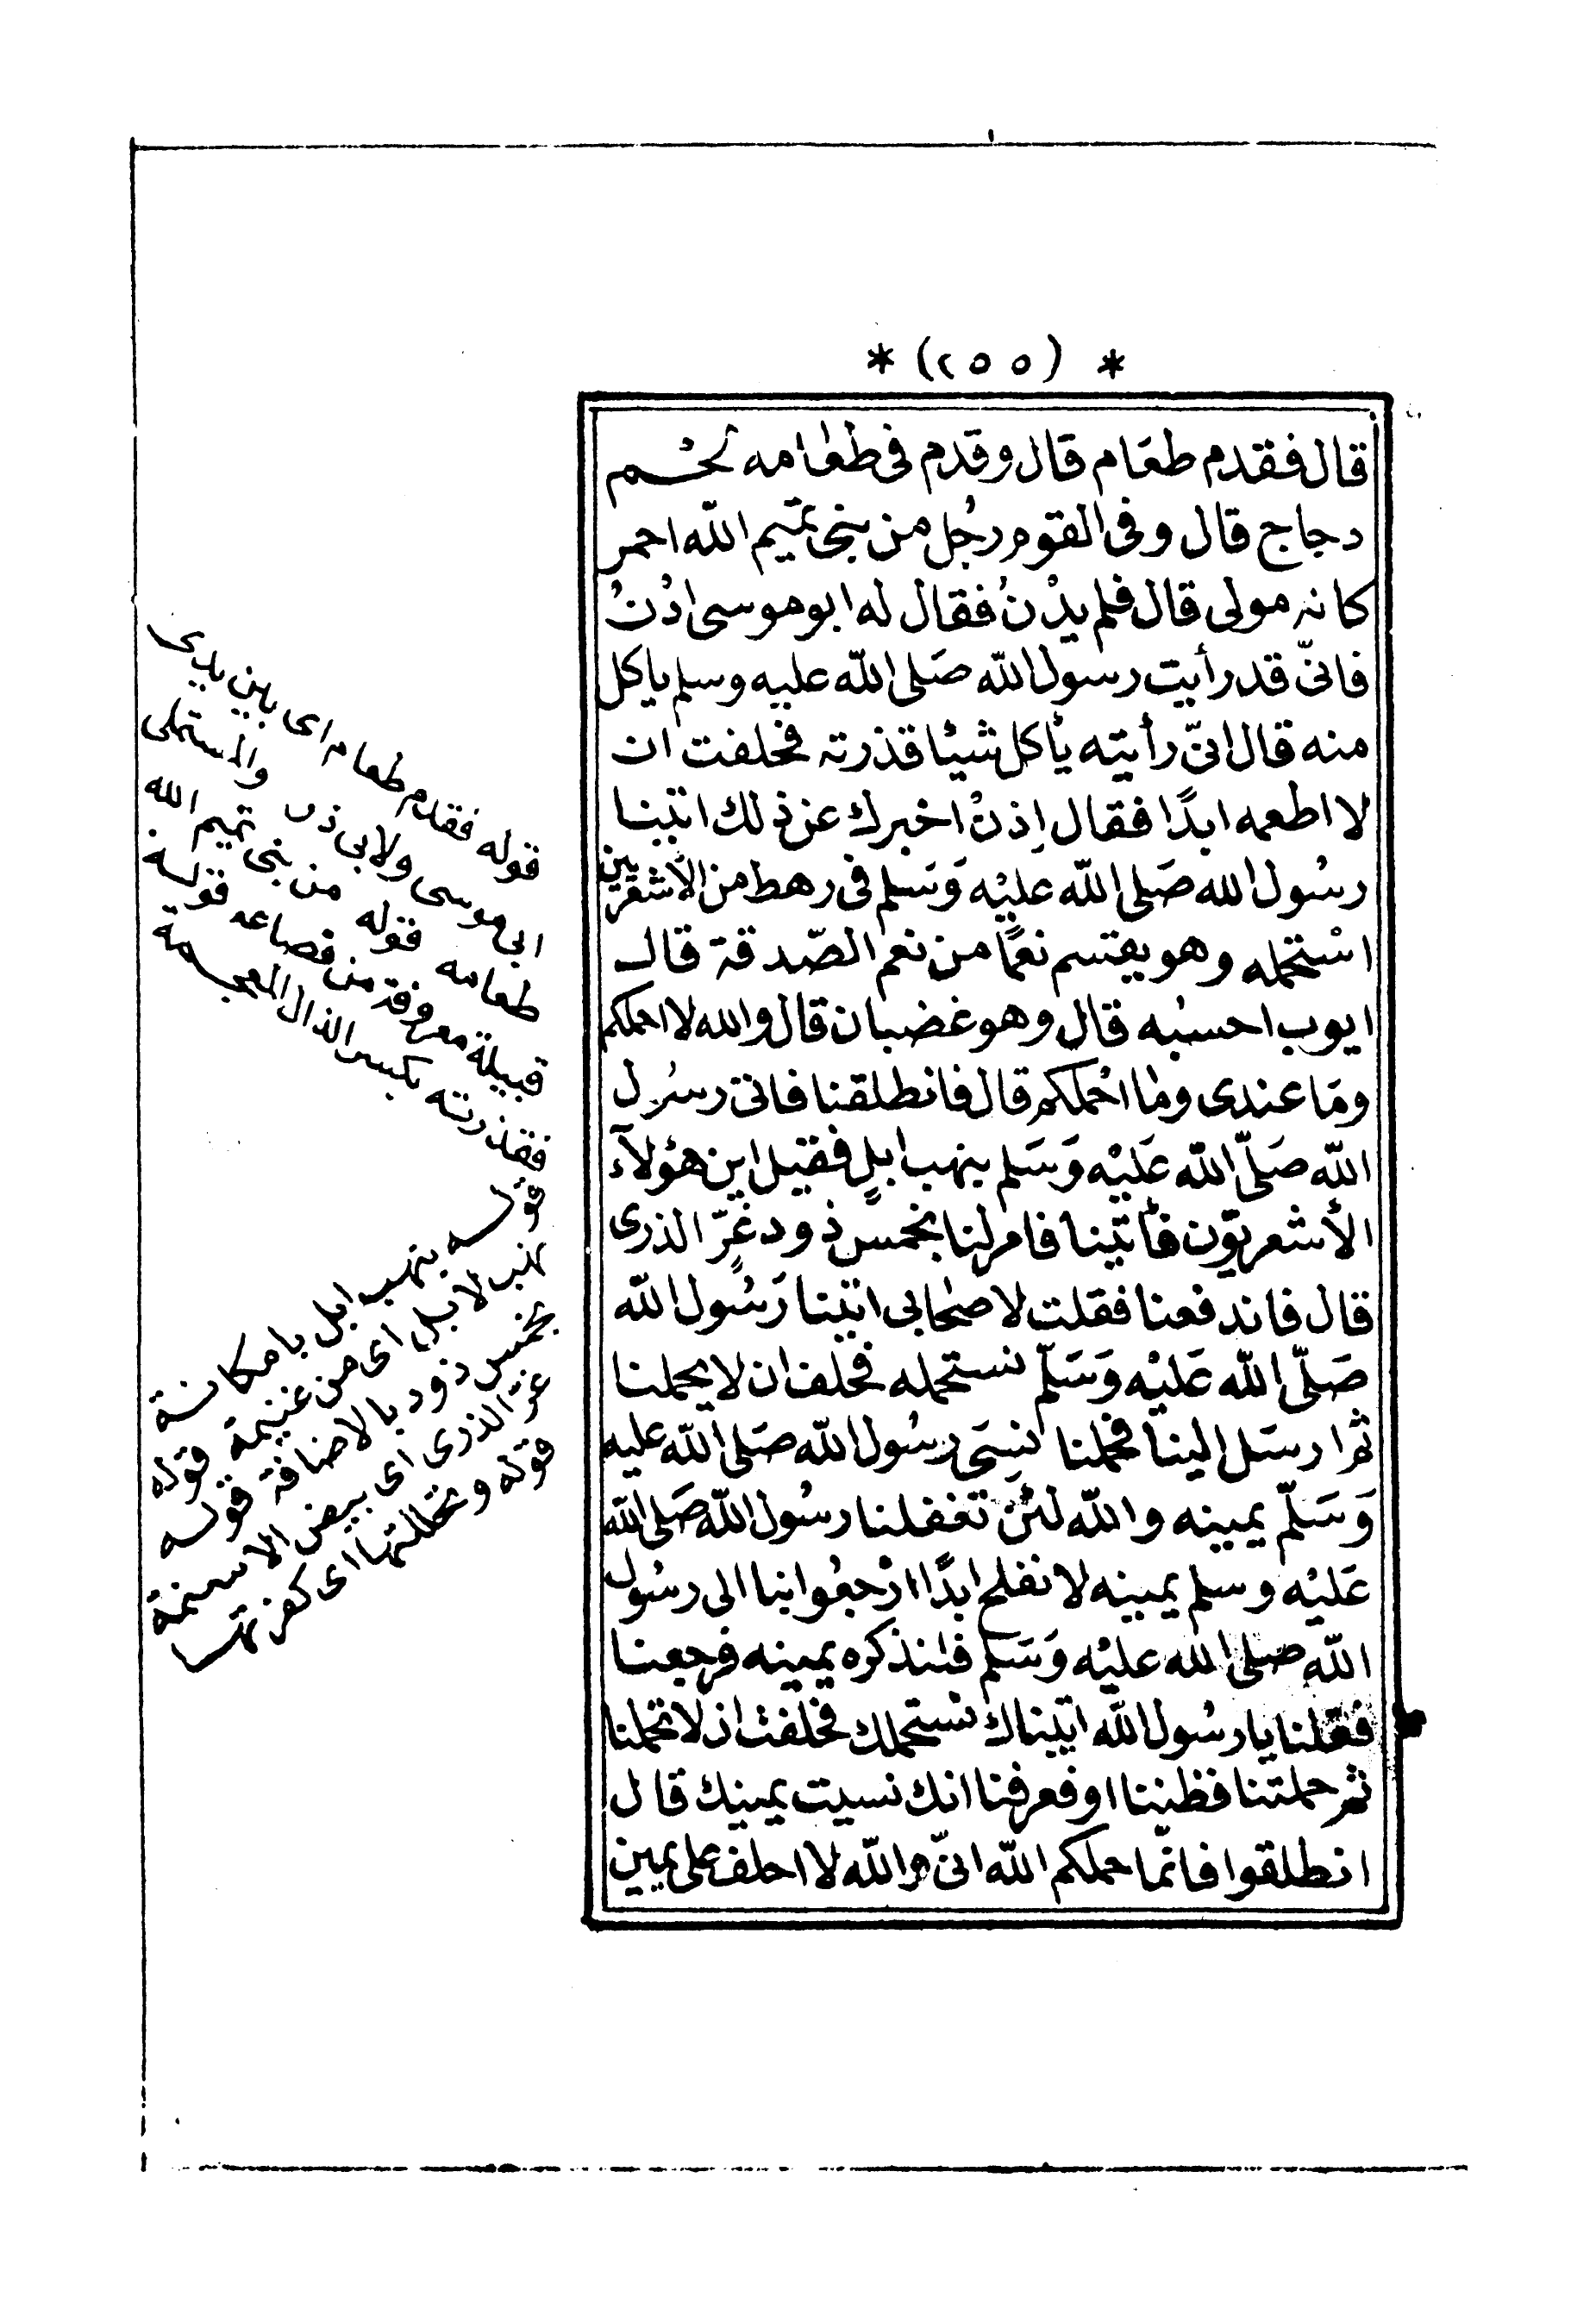 * (٢٥٥) *
قال فقدم طعَام قال وقدم فى طعَامه لحْم
دجاج قال وفى القوم رجُل من بنى تميم الله احمر
كانه مولى قال فلم يدْنُ فقال له ابو موسى ادْنُ
فانّى قد رأيت رسول الله صَلى الله عليه وسلم ياكل
منه قال انّى رأيته يأكل شيئا قذرته فحلفت ان
لا اطعمه ابدًا فقال اِدْنُ اخبرك عن ذلك اتينا
رسُول الله صَلى الله عليْه وَسَلم فى رهط من الأشعريين
اسْتحمله وهو يقسم نعمًا من نعم الصّدقة قال
ايوب احسبُه قال وهو غضبان قال والله لا احملكم
ومَا عندى ومٰا احْملكم قال فانطلقنا فاتى رسُول
الله صَلّى الله عَليْه وَسَلم بنهب ابلٍ فقيل اين هؤلآء
الأشعريّون فأتينا فامر لنا بخمسِ ذود غرّ الذرى
قال فاندفعنا فقلت لاصحٰابى اتينا رَسُول الله
صَلّى الله عَليْه وَسَلّم نستحمله فحلف ان لا يحملنا
ثم ارسَل الينا فحملنا نسِىَ رسُول الله صَلى الله عليه
وَسَلّم يمينه والله لئن تغفلنا رسُول الله صَلى الله
عَليْه وسلم يمينه لا نفلح ابدًا ارْجعُوا بنا الى رسُول
الله صلى الله عليْه وَسَلم فلنذكره يمينه فرجعنا
فقلنا يا رسُول الله اتيناك نستحملك فحلفت ان لا تحملنا
ثم حملتنا فظننا او فعرفنا انك نسيت يمينك قال
انطلقوا فانّما حملكم الله انّى والله لا احلف على يمين
قوله فقدم طعام اى بين يدى
ابى موسى ولابى ذر والمستملى
طعامه قوله من بنى تميم الله
قبيلة معروفة من قضاعه قوله
فقذرته بكسر الذال المعجمة
قوله بنهب ابل باضافة
نهب لابل اى من غنيمة قوله
بخمس ذود بالاضافة قوله
غر الذرى اى بيض الاسنمة
قوله وتحللتها اى كفرتها